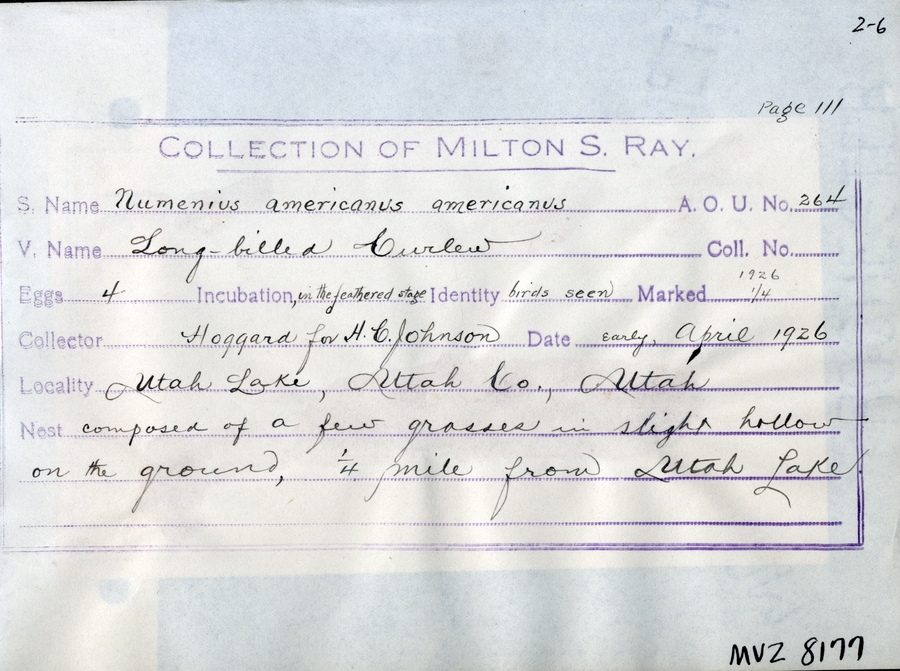 2-6
Page 111
COLLECTION OF MILTON S. RAY.
S. Name Numenius americanus americanus A. O. U. No. 264
V. Name Long-billed Curlew Coll. No.
1926
Eggs 4 Incubation, in the feathered stage Identity birds seen Marked 1/4
Collector Hoggard for H. C. Johnson Date early, April 1926
Locality Utah Lake, Utah Co., Utah
Nest composed of a few grasses in slight hollow
on the ground, 1/4 mile from Utah Lake.
MVZ 8177